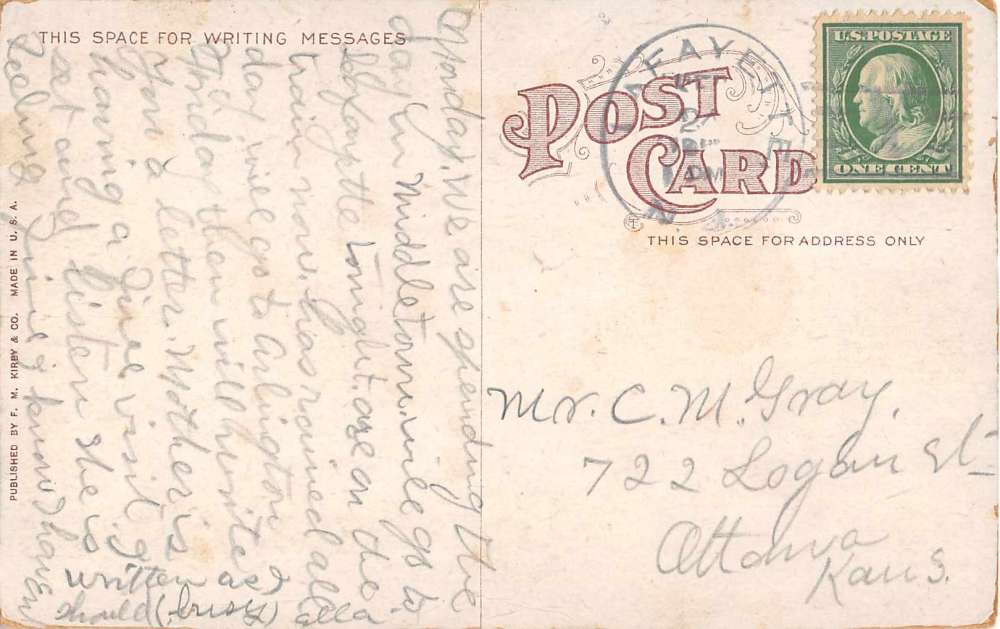 THIS SPACE FOR WRITING MESSAGES
Monday, We are spending the
day in Middletown. will go to
Layette tonight. are on the
trail now. has rained all
day will go to Arlington
Friday then will write
you a letter. Mother is
having a fine visit. I
set and listen she is
feeling fine. I know I haven
written as I
should (busy) Ella
PUBLISHED BY F. M. KIRBY & CO. MADE IN U. S. A.
POST
CARD
LAFAYETTE
2
PM
N
U.S. POSTAGE
ONE CENT
THIS SPACE FOR ADDRESS ONLY
Mr. C. M. Gray.
722 Logan St
Ottawa
Kans.